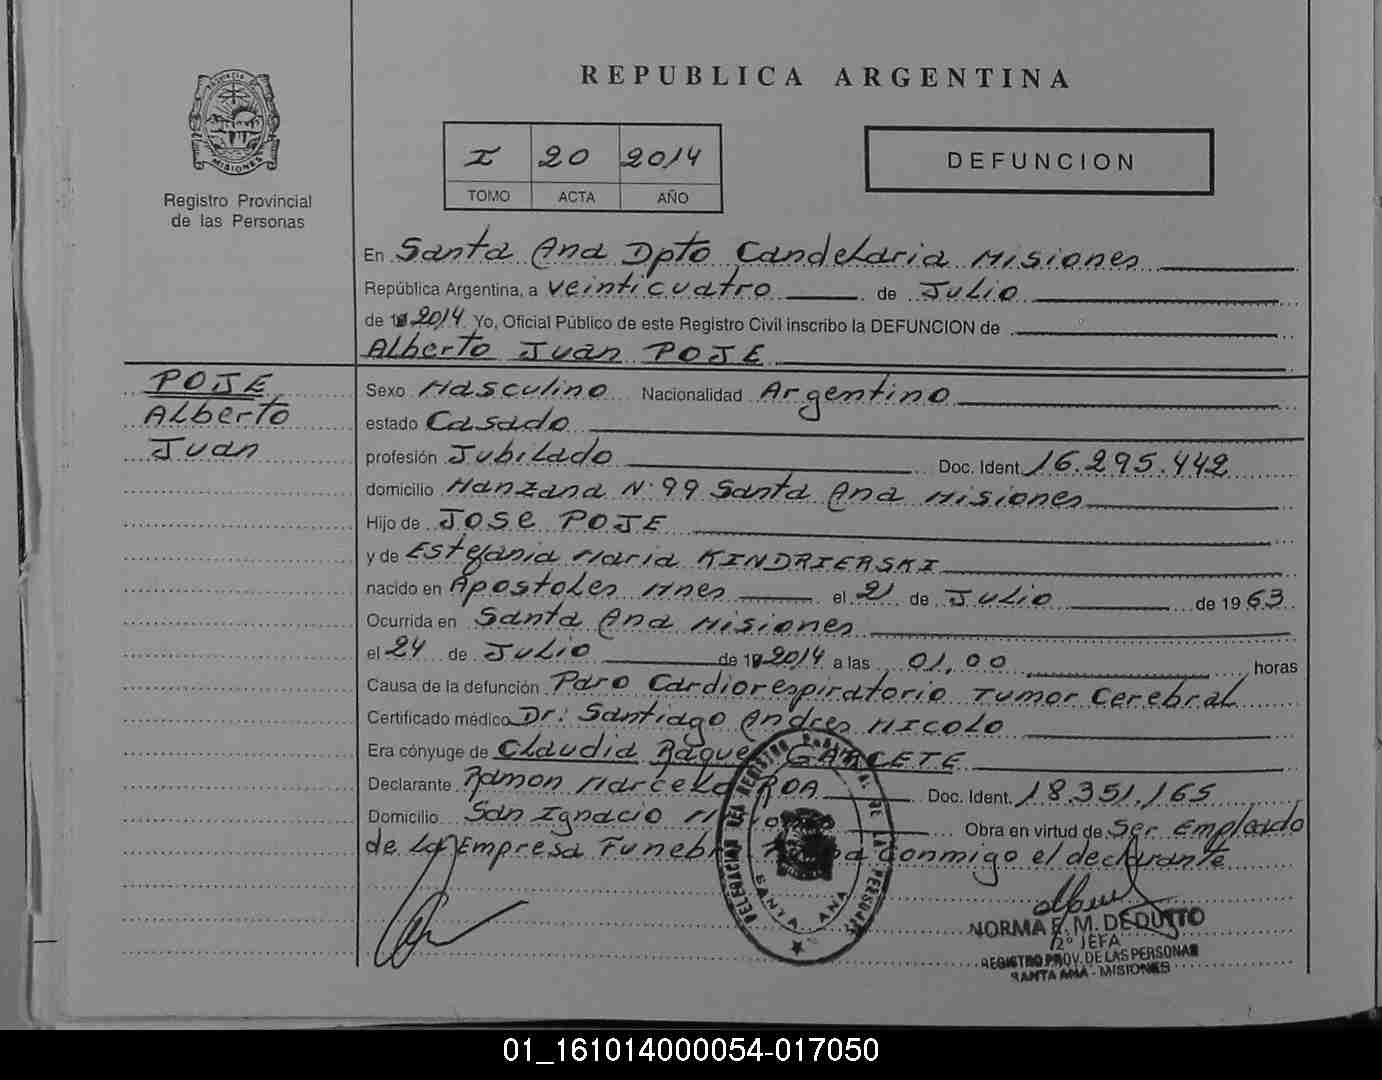 REPUBLICA ARGENTINA
PROVINCIA DE
MISIONES
Registro Provincial
de las Personas
I 20 2014
TOMO ACTA AÑO
DEFUNCION
En Santa Ana Dpto Candelaria Misiones
República Argentina, a veinticuatro de Julio
de 2014 Yo, Oficial Público de este Registro Civil inscribo la DEFUNCION de
Alberto Juan POJE
POJE
Alberto
Juan
Sexo Masculino Nacionalidad Argentino
estado Casado
profesión Jubilado Doc. Ident. 16.295.442
domicilio Manzana N° 99 Santa Ana Misiones
Hijo de JOSE POJE
y de Estefania Maria KINDRIERSKI
nacido en Apostoles Mnes el 21 de Julio de 1963
Ocurrida en Santa Ana Misiones
el 24 de Julio de 2014 a las 01,00 horas
Causa de la defunción Paro Cardiorespiratorio Tumor Cerebral
Certificado médico Dr: Santiago Andres NICOLO
Era cónyuge de Claudia Raquel GARCETE
Declarante Ramon Marcelo ROA Doc. Ident. 18.351.165
Domicilio San Ignacio Misiones Obra en virtud de Ser Empleado
de La Empresa Funebre conmigo el declarante
DELEGACION DEL REGISTRO DE LAS PERSONAS
SANTA ANA
NORMA E. M. DE QUITO
2° JEFA
REGISTRO PROV. DE LAS PERSONAS
SANTA ANA - MISIONES
01_161014000054-017050